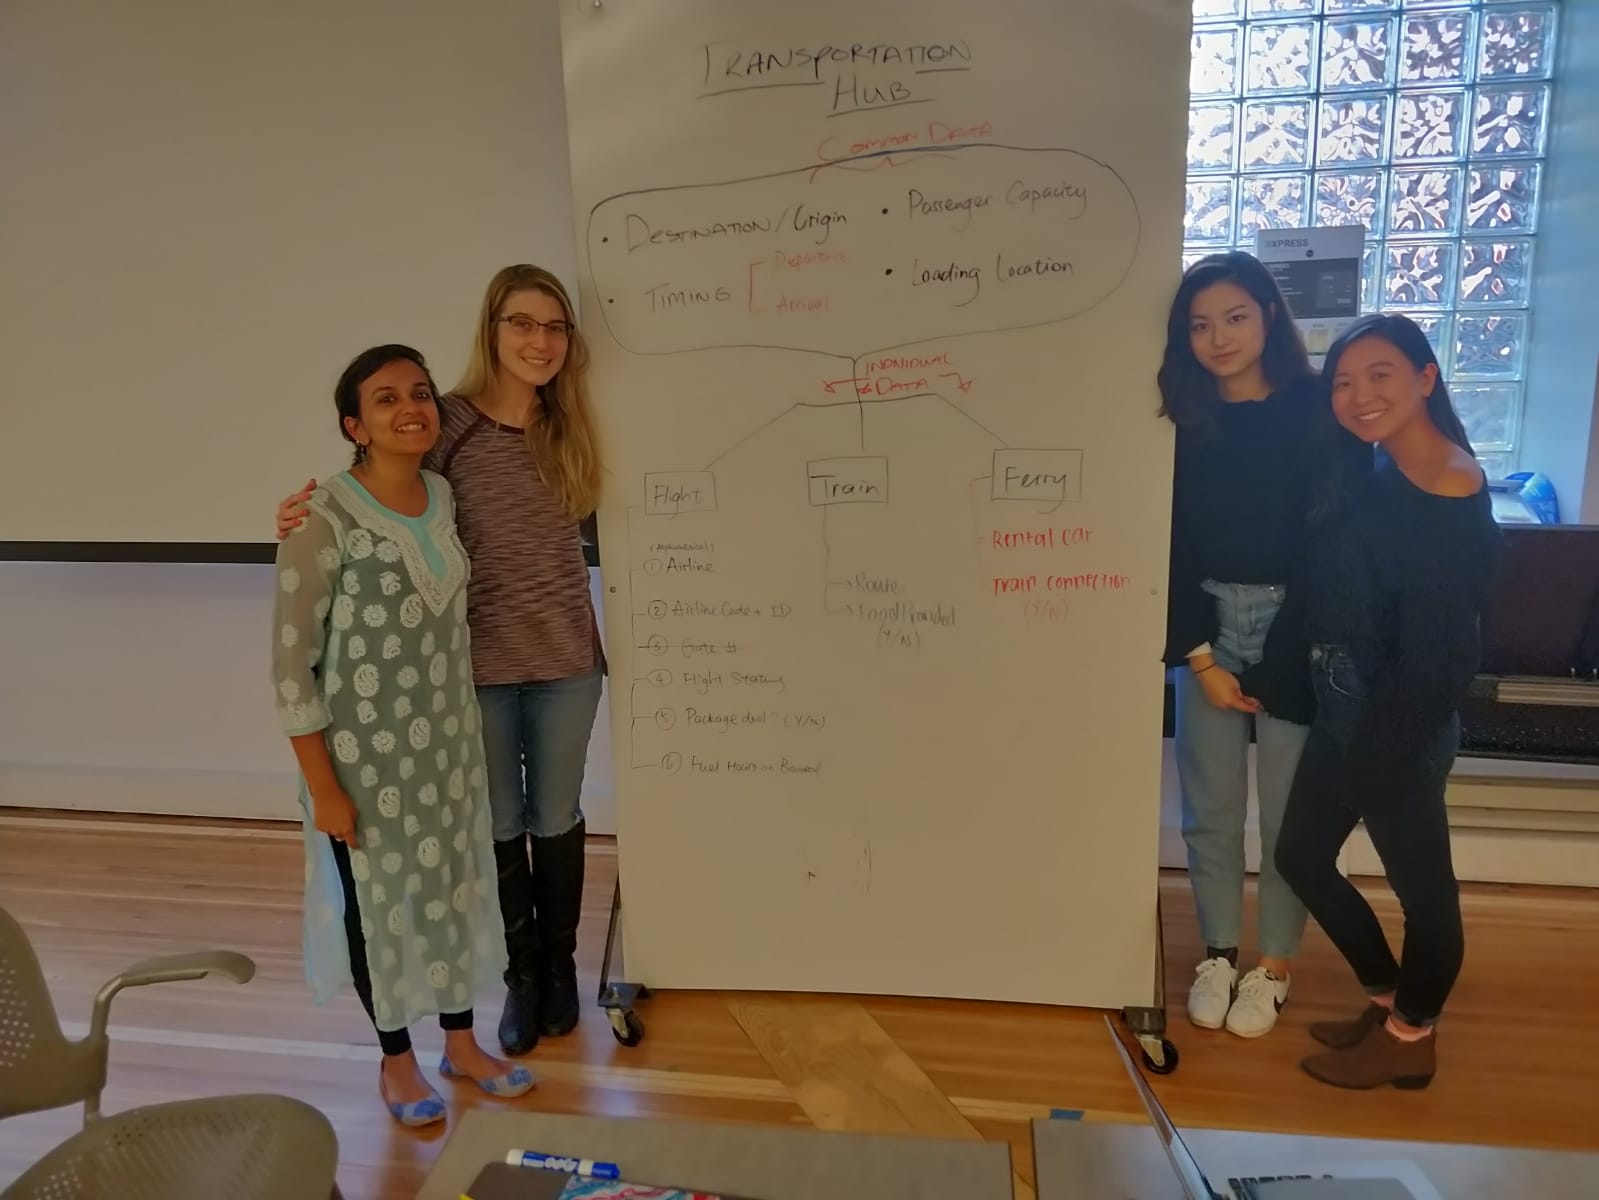 TRANSPORTATION
HUB
COMMON DATA
• DESTINATION / Origin
• TIMING
Departure
Arrival
• Passenger Capacity
• Loading Location
INDIVIDUAL
DATA
Flight
(Alphabetical)
① Airline
② Airline Code + ID
③ Gate #
④ Flight Status
⑤ Package deal? (Y/N)
⑥ Fuel Hours on Board
Train
→ Route
→ Food Provided
(Y/N)
Ferry
Rental car
Train connection
(Y/N)
EXPRESS
EXPO